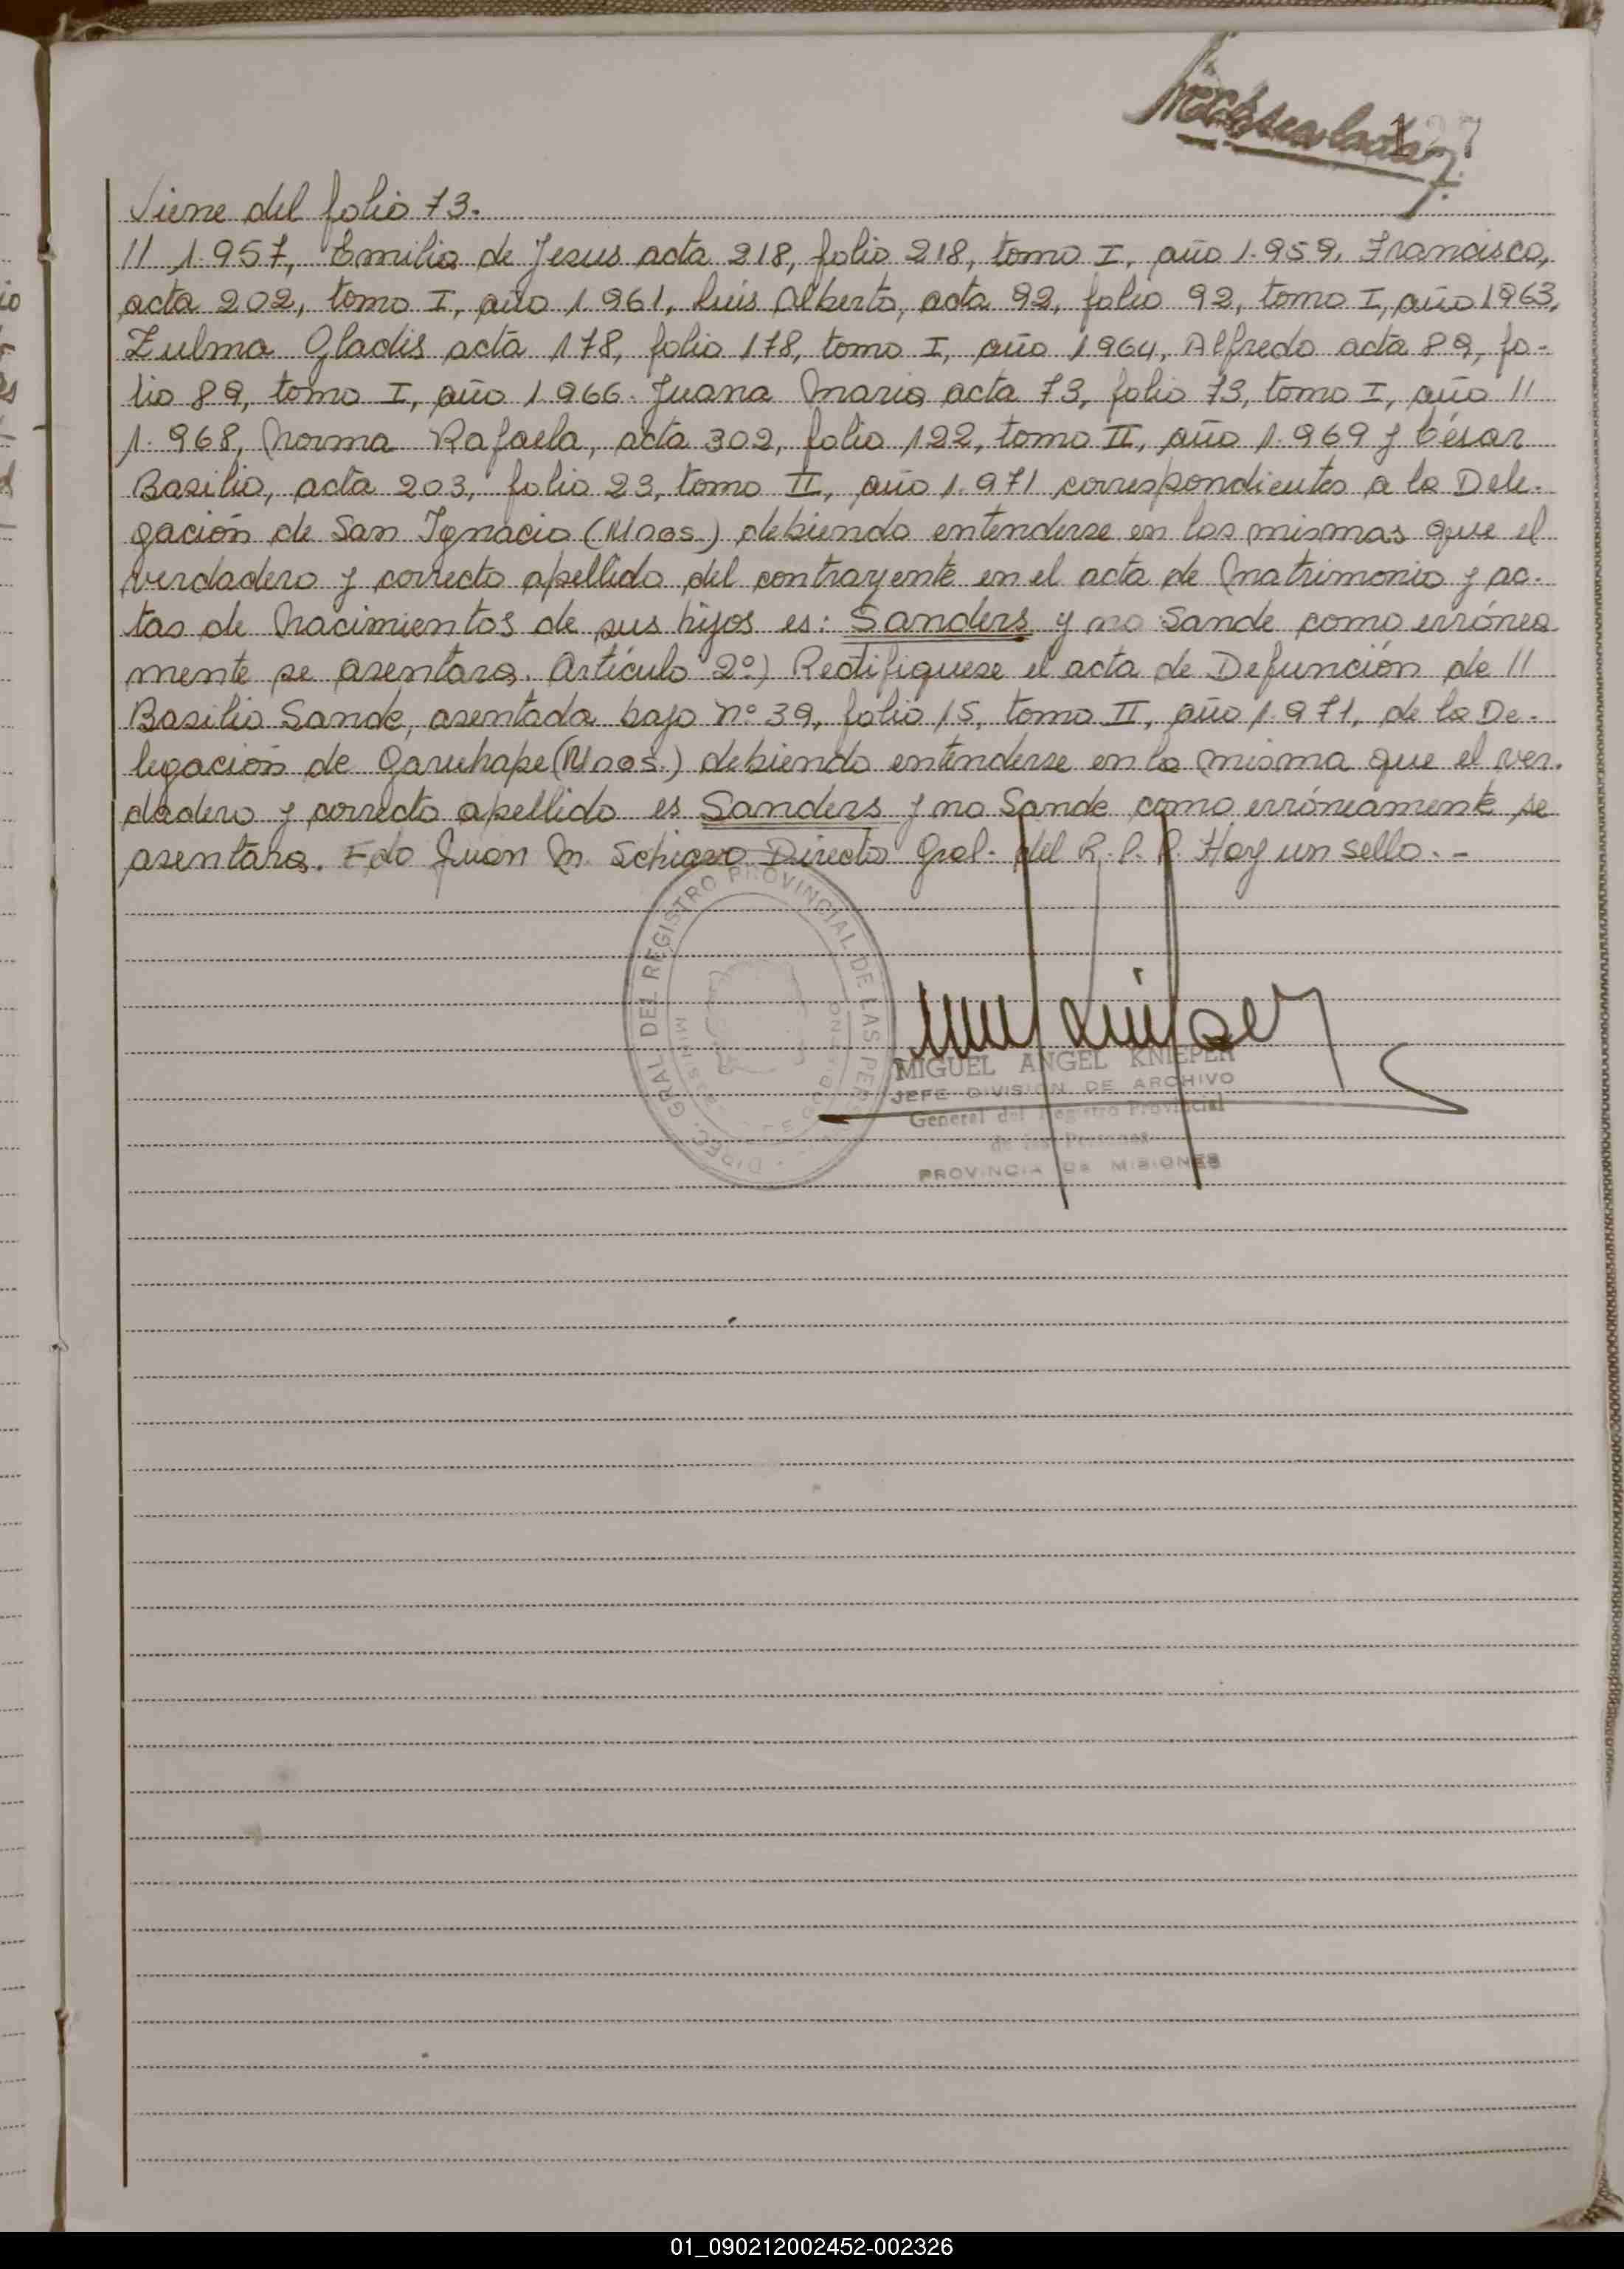 127
Viene del folio 73.
// 1.957, Emilio de Jesus acta 218, folio 218, tomo I, año 1.959, Francisco,
acta 202, tomo I, año 1.961, Luis Alberto, acta 92, folio 92, tomo I, año 1963,
Zulma Gladis acta 178, folio 178, tomo I, año 1964, Alfredo acta 89, fo-
lio 89, tomo I, año 1.966. Juana Maria acta 73, folio 73, tomo I, año //
1.968, Norma Rafaela, acta 302, folio 122, tomo II, año 1.969 y César
Basilio, acta 203, folio 23, tomo II, año 1.971 correspondientes a la Dele-
gación de San Ignacio (Mnes.) debiendo entenderse en las mismas que el
verdadero y correcto apellido del contrayente en el acta de Matrimonio y ac-
tas de Nacimientos de sus hijos es: Sanders y no Sande como erronea
mente se asentara. Artículo 2º) Rectifiquese el acta de Defunción de //
Basilio Sande, asentada bajo nº 39, folio 15, tomo II, año 1.971, de la De-
legación de Garuhape (Mnes.) debiendo entenderse en la misma que el ver-
dadero y correcto apellido es Sanders y no Sande como erróneamente se
asentara. Fdo Juan M. Schiavo Director Gral. del R.P.P. Hay un sello. -
DIREC. GRAL DEL REGISTRO PROVINCIAL DE LAS PERSONAS
MISIONES
MIGUEL ANGEL KNIEPER
JEFE DIVISION DE ARCHIVO
General del Registro Provincial
de las Personas
PROVINCIA DE MISIONES
01_090212002452-002326